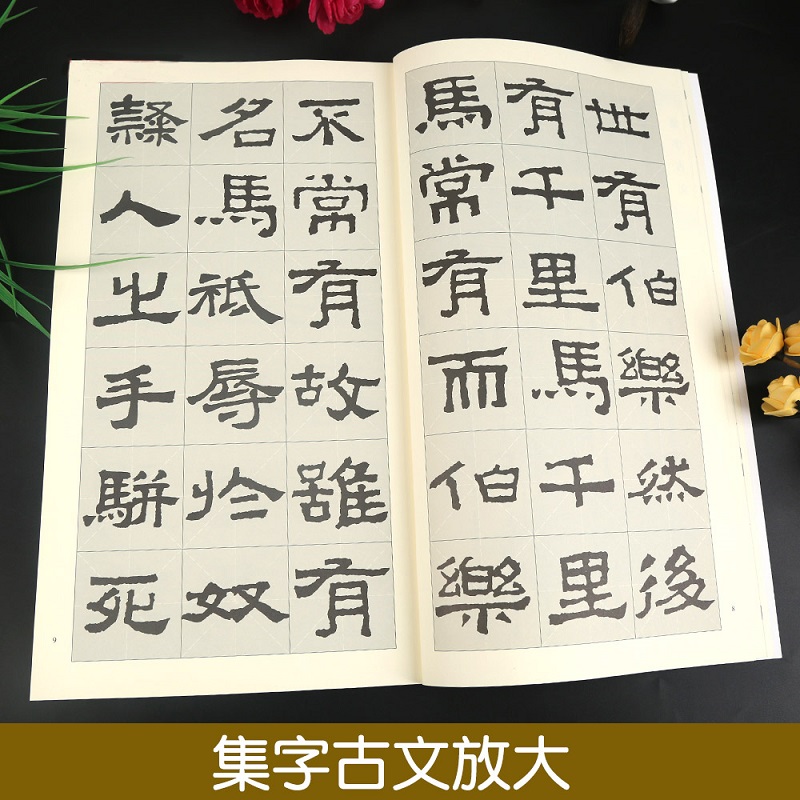 世有伯樂然後
有千里馬千里
馬常有而伯樂
8
不常有故雖有
名馬祇辱於奴
隸人之手駢死
9
集字古文放大